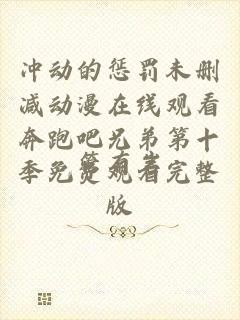 冲动的惩罚未删
减动漫在线观看
奔跑吧兄弟第十
季免费观看完整
版